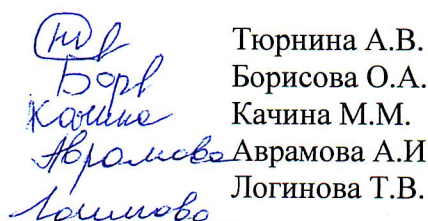 Тюрнина А.В.
Борисова О.А.
Качина Качина М.М.
Аврамова Аврамова А.И
Логинова Т.В.